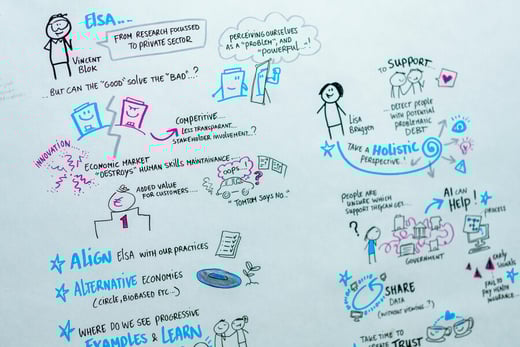 ELSA...
VINCENT
BLOK
FROM RESEARCH FOCUSSED
TO PRIVATE SECTOR
PERCEIVING OURSELVES
AS A "PROBLEM", AND
"POWERFUL"..!
...BUT CAN THE "GOOD" SOLVE THE "BAD"...?
COMPETITIVE...
LESS TRANSPARENT...
STAKEHOLDER INVOLVEMENT...?
INNOVATION
ECONOMIC MARKET
"DESTROYS" HUMAN SKILLS MAINTAINANCE...
OOPS
"TOMTOM SAYS NO."
ADDED VALUE
FOR CUSTOMERS....
1
ALIGN ELSA WITH OUR PRACTICES
ALTERNATIVE ECONOMIES
(CIRCL, BIOBASED ETC..)
WHERE DO WE SEE PROGRESSIVE
EXAMPLES & LEARN
TO SUPPORT
LISA
BRÜGGEN
...DETECT PEOPLE
WITH POTENTIAL
PROBLEMATIC
DEBT
TAKE A HOLISTIC
PERSPECTIVE!
PEOPLE ARE
UNSURE WHICH
SUPPORT THEY CAN GET...
?
GOVERNMENT
AI CAN
HELP!
PROCESS
EARLY
SIGNALS
FAIL TO
PAY HEALTH
INSURANCE...
SHARE
DATA
(WITHOUT VIEWING?)
TAKE TIME TO
CREATE TRUST